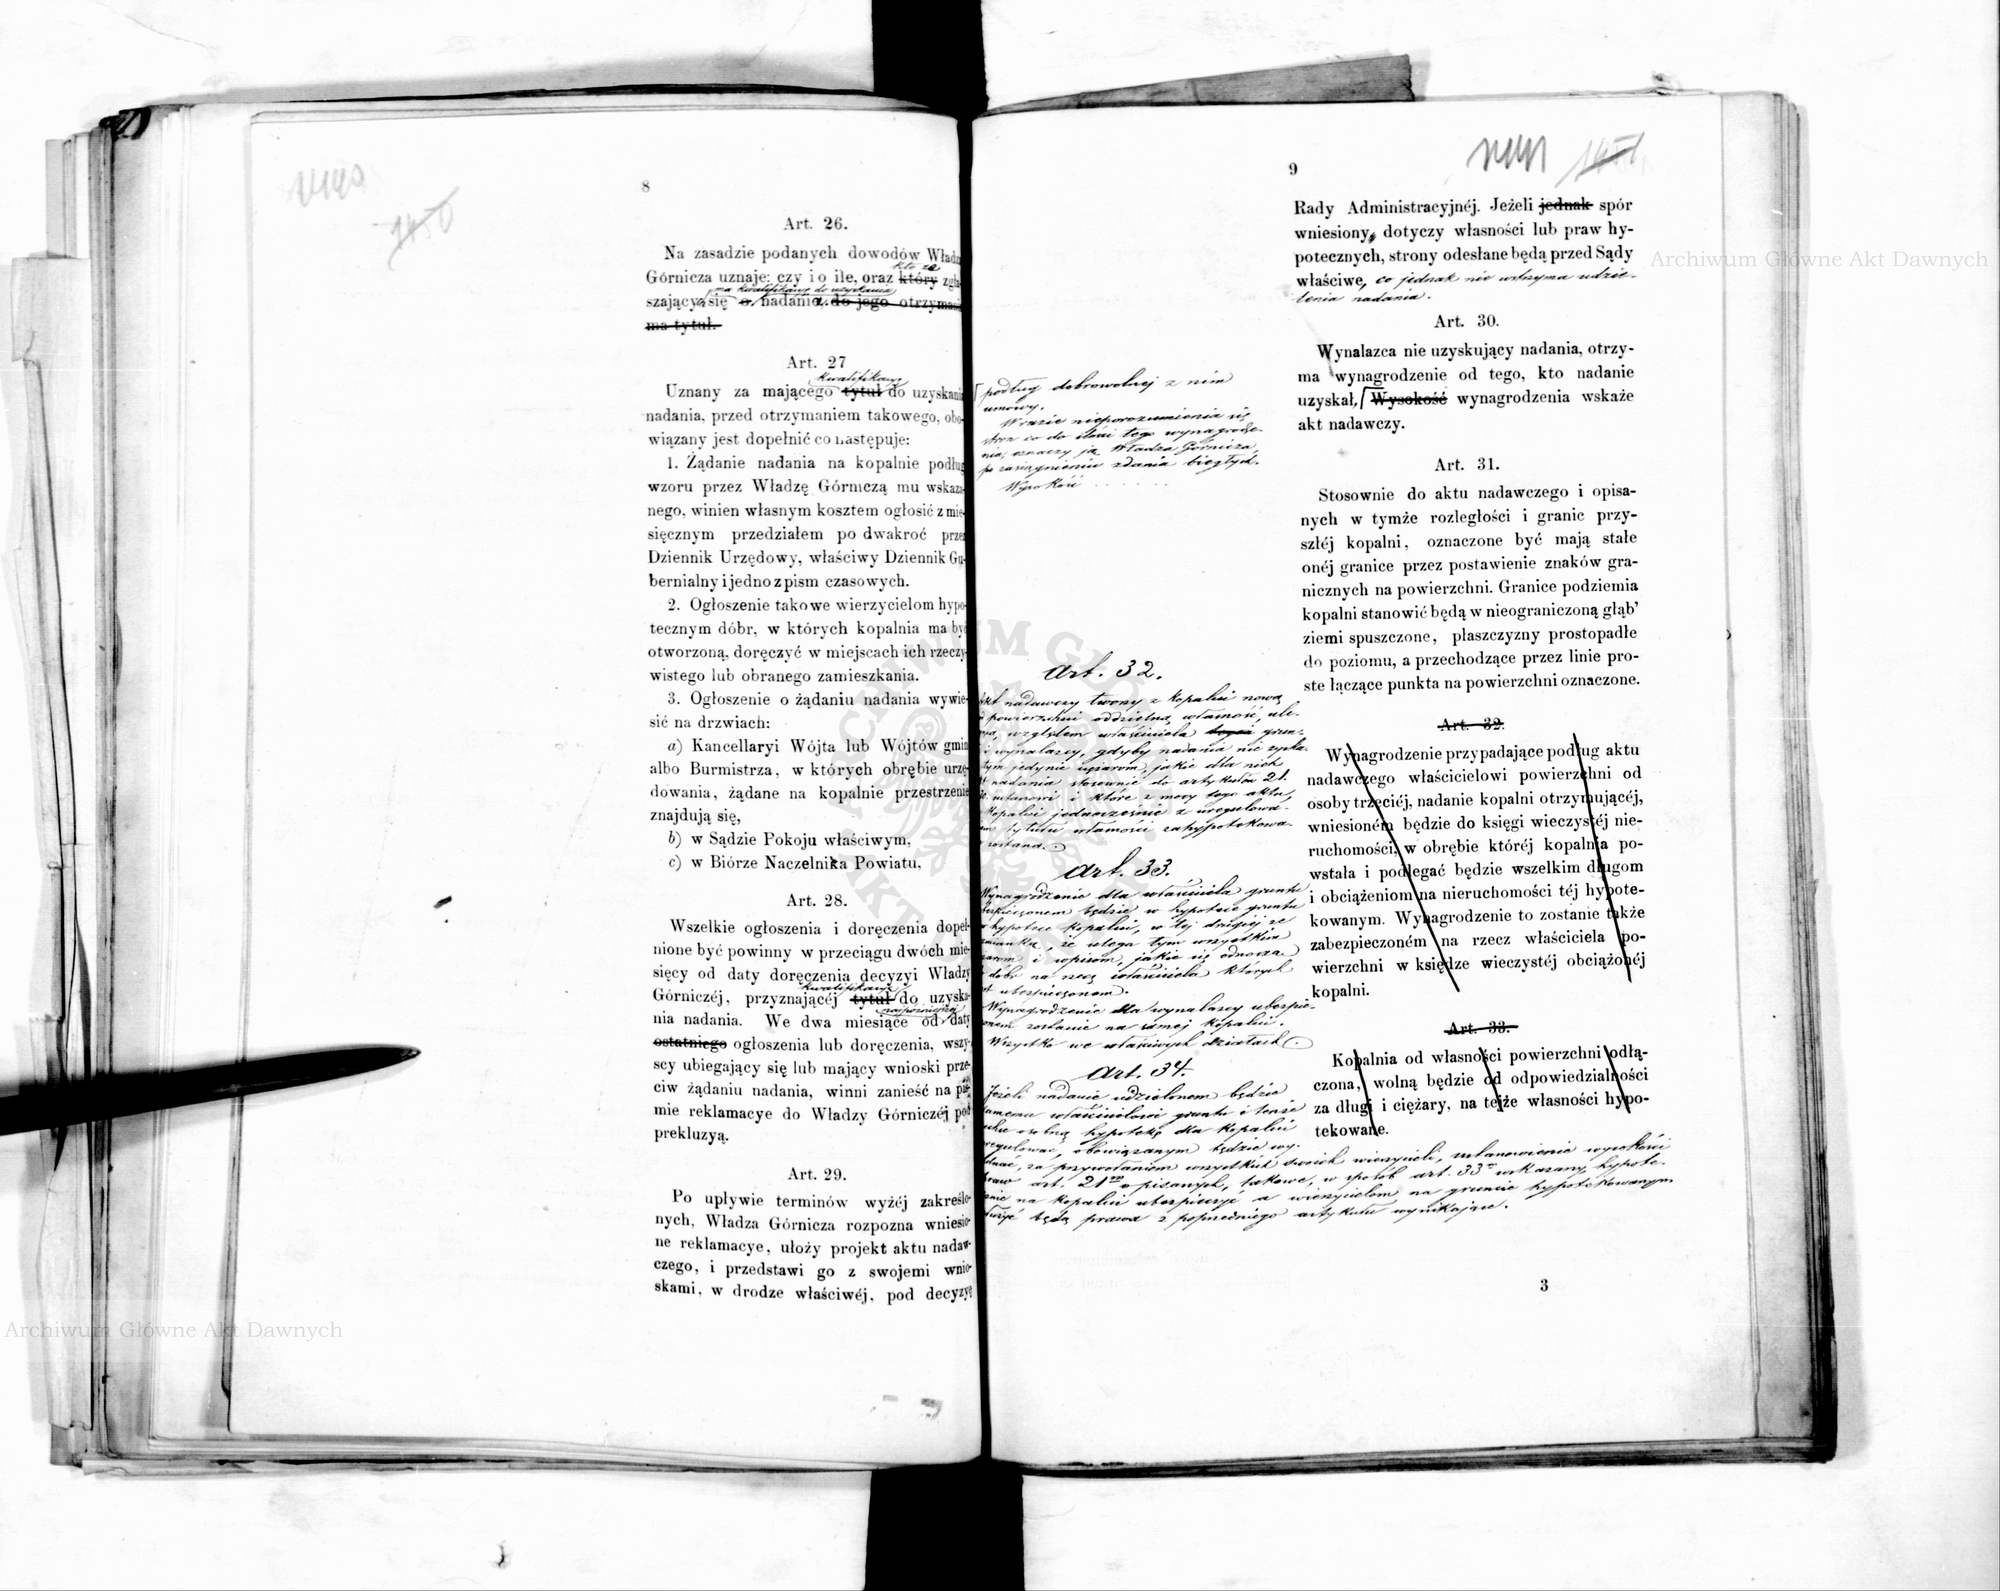 8
Art. 26.
Na zasadzie podanych dowodów Władz
kto za
Górnicza uznaje: czy i o ile, oraz który zgła
ma kwalifikacyę do uzyskania
szający się o nadanie do jego otrzymani
ma tytuł.
Art. 27
kwalifikacyę
Uznany za mającego tytuł do uzyskani
nadania, przed otrzymaniem takowego, obo-
wiązany jest dopełnić co następuje:
1. Żądanie nadania na kopalnie podług
wzoru przez Władzę Górniczą mu wskaza-
nego, winien własnym kosztem ogłosić z mie-
sięcznym przedziałem po dwakroć prze
Dziennik Urzędowy, właściwy Dziennik Gu-
bernialny i jedno z pism czasowych.
2. Ogłoszenie takowe wierzycielom hypo-
tecznym dóbr, w których kopalnia ma być
otworzoną, doręczyć w miejscach ich rzeczy-
wistego lub obranego zamieszkania.
3. Ogłoszenie o żądaniu nadania wywie-
sić na drzwiach:
a) Kancellaryi Wójta lub Wójtów gmin
albo Burmistrza, w których obrębie urzę-
dowania, żądane na kopalnie przestrzenie
znajdują się,
b) w Sądzie Pokoju właściwym,
c) w Biórze Naczelnika Powiatu.
Art. 28.
Wszelkie ogłoszenia i doręczenia dopeł-
nione być powinny w przeciągu dwóch mie-
sięcy od daty doręczenia decyzyi Władzy
kwalifikacyę
Górniczéj, przyznającéj tytuł do uzyska-
najpóźniejszéj
nia nadania. We dwa miesiące od daty
ostatniego ogłoszenia lub doręczenia, wszy-
scy ubiegający się lub mający wnioski prze-
ciw żądaniu nadania, winni zanieść na piś-
mie reklamacye do Władzy Górniczéj pod
prekluzyą.
Art. 29.
Po upływie terminów wyżéj zakreślo-
nych, Władza Górnicza rozpozna wniesio-
ne reklamacye, ułoży projekt aktu nadaw-
czego, i przedstawi go z swojemi wnio-
skami, w drodze właściwéj, pod decyzyę
9
Rady Administracyjnéj. Jeżeli jednak spór
wniesiony, dotyczy własności lub praw hy-
potecznych, strony odesłane będą przed Sądy
właściwe, co jednak nie wstrzyma udzie-
lenia nadania.
Art. 30.
Wynalazca nie uzyskujący nadania, otrzy-
ma wynagrodzenie od tego, kto nadanie
uzyskał, Wysokość wynagrodzenia wskaże
akt nadawczy.
podług dobrowolnej z nim
umowy.
W razie nieporozumienia się
stron co do ilości tego wynagrodze-
nia, oznaczy ją Władza Górnicza,
po zasiągnieniu zdania biegłych.
Wysokość . . . . . .
Art. 31.
Stosownie do aktu nadawczego i opisa-
nych w tymże rozległości i granic przy-
szłéj kopalni, oznaczone być mają stałe
onéj granice przez postawienie znaków gra-
nicznych na powierzchni. Granice podziemia
kopalni stanowić będą w nieograniczoną głąb'
ziemi spuszczone, płaszczyzny prostopadłe
do poziomu, a przechodzące przez linie pro-
ste łączące punkta na powierzchni oznaczone.
Art. 32.
Wynagrodzenie przypadające podług aktu
nadawczego właścicielowi powierzchni od
osoby trzeciéj, nadanie kopalni otrzymującéj,
wniesioném będzie do księgi wieczystéj nie-
ruchomości, w obrębie któréj kopalnia po-
wstała i podlegać będzie wszelkim długom
i obciążeniom na nieruchomości téj hypote-
kowanym. Wynagrodzenie to zostanie także
zabezpieczoném na rzecz właściciela po-
wierzchni w księdze wieczystéj obciążonéj
kopalni.
Art. 33.
Kopalnia od własności powierzchni odłą-
czona, wolną będzie od odpowiedzialności
za długi i ciężary, na tejże własności hypo-
tekowane.
Art. 32.
Akt nadawczy tworzy z kopalni nową
powierzchni oddzielną własność, ule-
względem właściciela grun-
i wynalazcy, gdyby nadania nie zyska-
tym jedynie ciężarom, jakie dla nich
nadania stosownie do artykułu 21.
ustanowi i które z mocy tego aktu,
kopalni jednocześnie z uregulowa-
tytułu własności zahypotekowa-
zostaną.
Art. 33.
Wynagrodzenie dla właściciela gruntu
bezpieczonem będzie w hypotece gruntu
hypotece kopalni, w tej drugiej ze
że ulega tym wszystkim
i wpisom, jakie się odnoszą
dóbr na rzecz właściciela których
ubezpieczonem.
Wynagrodzenie dla wynalazcy ubezpie-
czonem zostanie na samej kopalni.
Wszystko we właściwych działach.
Art. 34.
Jeżeli nadanie udzielonem będzie
samemu właścicielowi gruntu i tenże
osobną hypotekę dla kopalni
regulować, obowiązanym będzie wy-
jednać, za przywołaniem wszystkich swoich wierzycieli, ustanowienie wysokości
praw art. 21 opisanych, takowe, w sposób art. 33 wskazany, hypote-
cznie na kopalni ubezpieczyć a wierzycielom na gruncie hypotekowanym
służyć będą prawa z poprzedniego artykułu wynikające.
3
Archiwum Główne Akt Dawnych
Archiwum Główne Akt Dawnych
ARCHIWUM GŁÓWNE AKT